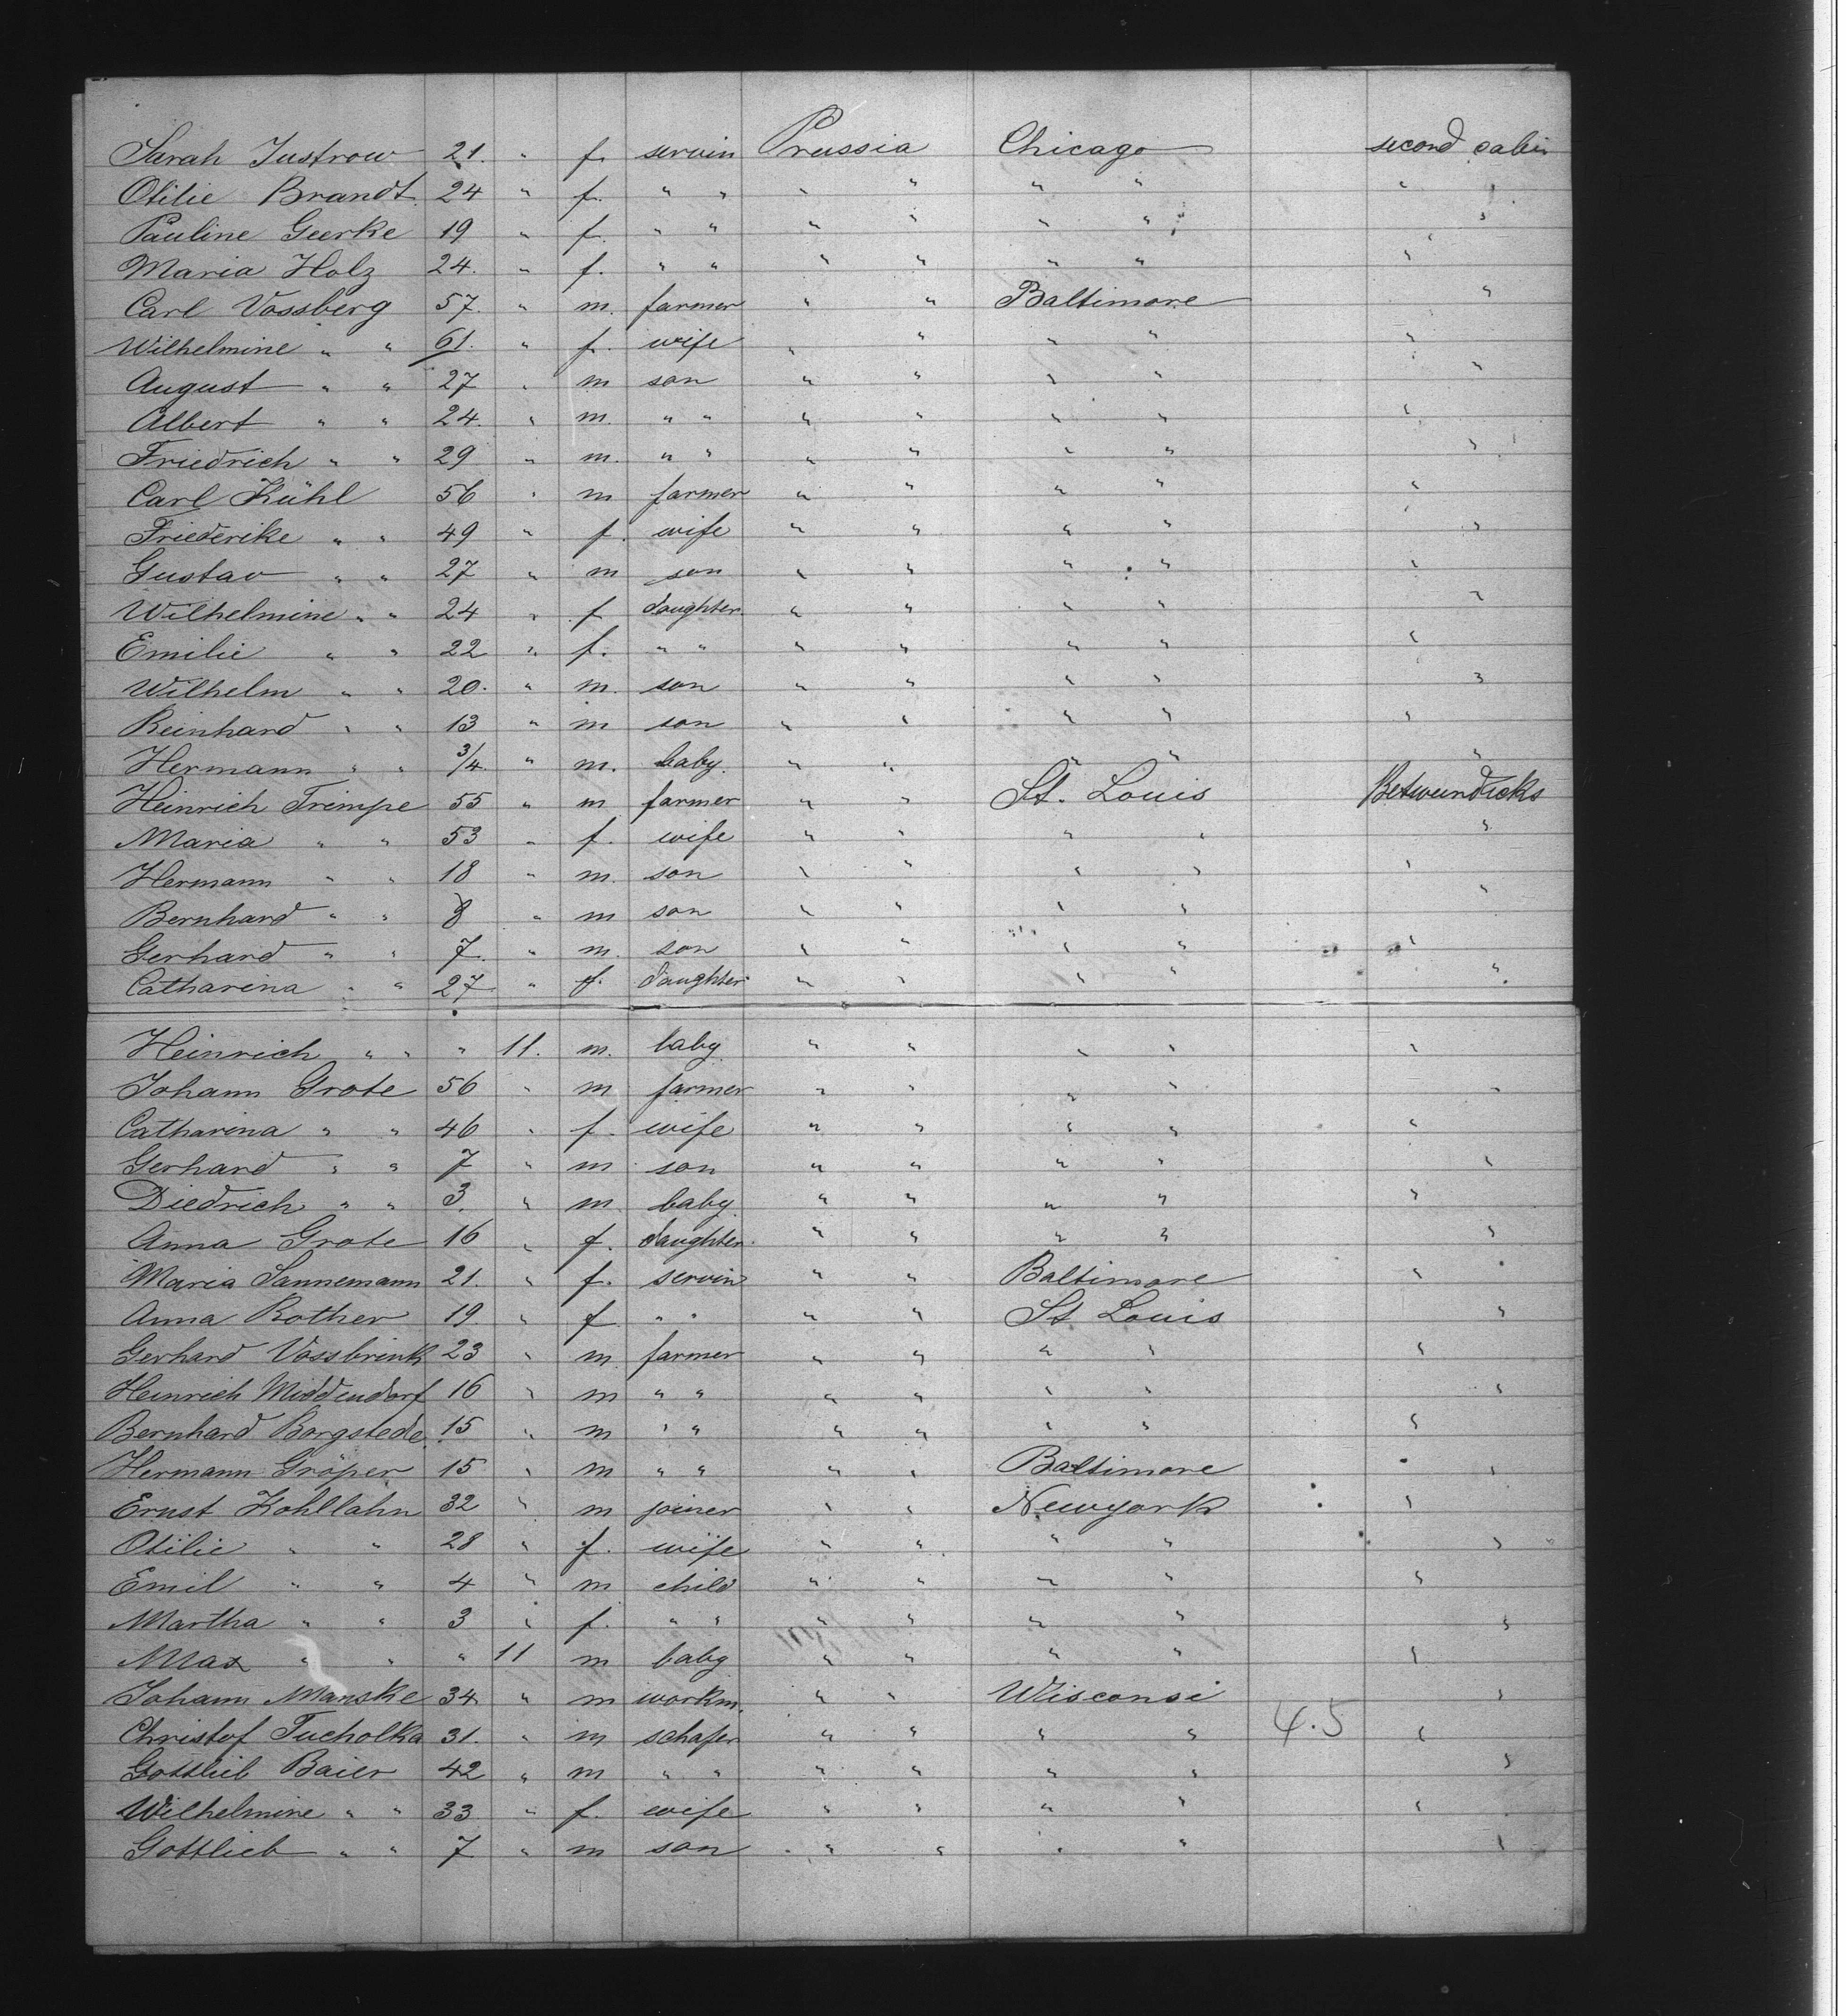 Sarah Justrow 21. " f. servin Prussia Chicago second cabin
Otilie Brandt. 24 " f. " " " " " " " "
Pauline Geerke 19 " f. " " " " " " " "
Maria Holz 24. " f. " " " " " " " "
Carl Vossberg 57. " m. farmer " " Baltimore "
Wilhelmine " " 61. " f. wife " " " " "
August " " 27 " m son " " " " "
Albert " " 24. " m. " " " " " " "
Friedrich " " 29 " m. " " " " " " "
Carl Kühl 56 " m farmer " " " " "
Friederike " " 49 " f. wife " " " " "
Gustav " " 27 " m son " " " " "
Wilhelmine " " 24 " f daughter " " " " "
Emilie " " 22 " f. " " " " " " "
Wilhelm " " 20. " m. son " " " " "
Reinhard " " 13 " m son " " " " "
Hermann " " 3/4. " m. baby. " " " " "
Heinrich Trimpe 55 " m farmer " " St. Louis Betweendicks
Maria " " 53 " f. wife " " " " "
Hermann " " 18 " m. son " " " " "
Bernhard " " 8 " m son " " " " "
Gerhard " " 7. " m. son " " " " "
Catharina " " 27 " f. daughter " " " " "
Heinrich " " " 11. m. baby " " " " "
Johann Grote 56 " m farmer " " " " "
Catharina " " 46 " f. wife " " " " "
Gerhard " " 7 " m son " " " " "
Diedrich " " 3. " m. baby. " " " " "
Anna Grote 16 " f. daughter " " " " "
Maria Sannemann 21. " f. servin " " Baltimore "
Anna Rother 19. " f " " " " St. Louis "
Gerhard Vossbrink 23 " m. farmer " " " " "
Heinrich Middendorf 16 " m " " " " " " "
Bernhard Borgstede 15 " m " " " " " " "
Hermann Gröper 15 " m " " " " Baltimore "
Ernst Kohllahn 32 " m joiner " " Newyork "
Otilie " " 28 " f. wife " " " " "
Emil " " 4 " m child " " " " "
Martha " " 3 " f. " " " " " " "
Max " " " 11 m baby " " " " "
Johann Manske 34 " m workm. " " Wisconsi "
Christof Tucholka 31. " m schafer " " " " 4.5 "
Gottlieb Baier 42 " m " " " " " " "
Wilhelmine " " 33 " f. wife " " " " "
Gottlieb " " 7 " m son " " " " "